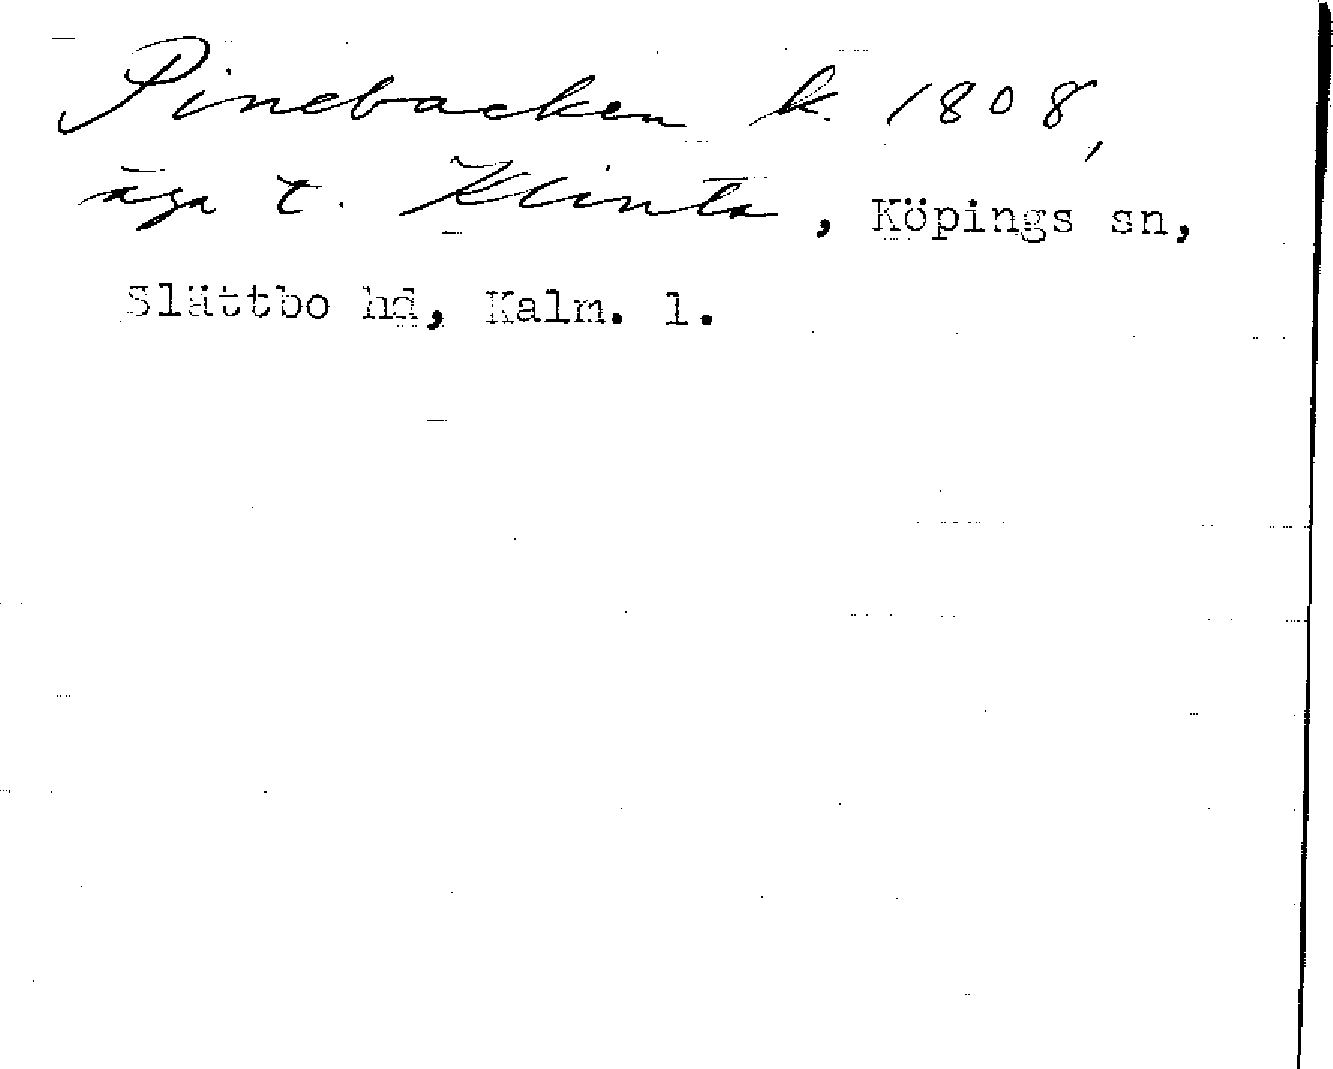 Pinebacken k. 1808,
äga t. Klinta, Köpings sn,
Slättbo hd, Kalm. l.